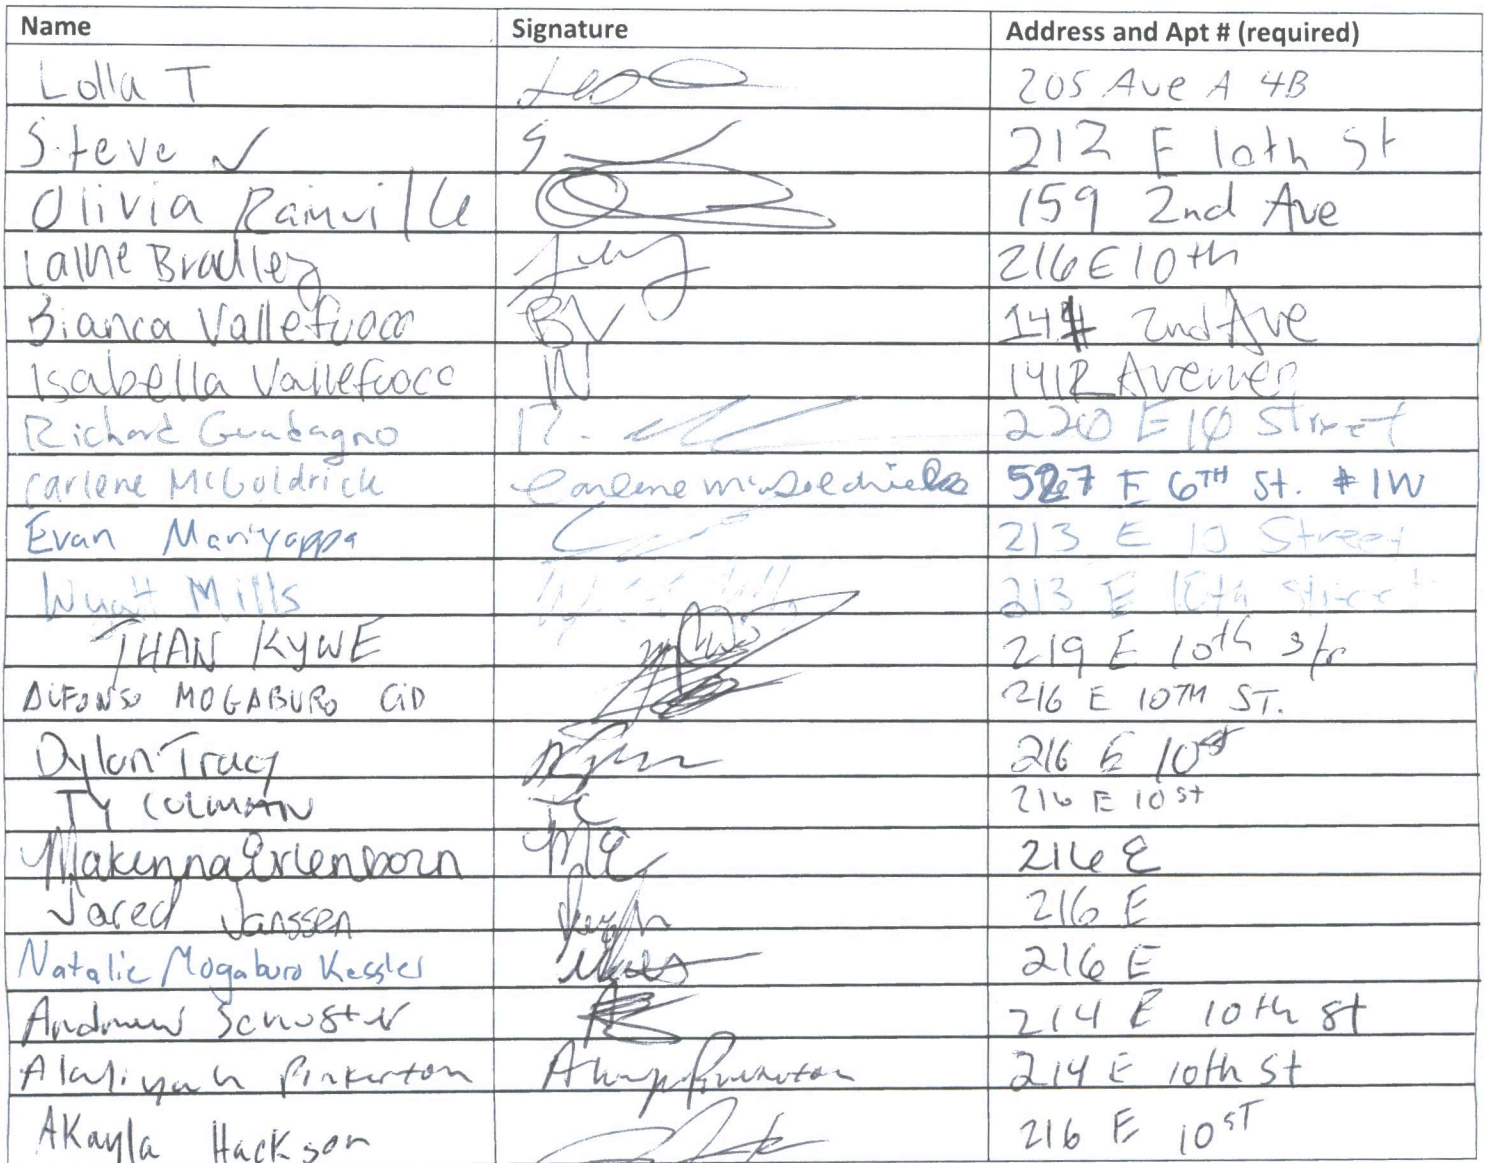 Name Signature Address and Apt # (required)
Lolla T 205 Ave A 4B
Steve ✓ S 212 E 10th St
Olivia Rainville 159 2nd Ave
Laine Bradley 216 E 10th
Bianca Vallefuoco BV 144 2nd Ave
Isabella Vallefuoco IV 141 2 Avenue
Richard Guadagno R. 220 E 10 Street
Carlene McGoldrick Carlene McGoldrick 527 E 6TH St. #1W
Evan Mariyappa 213 E 10 Street
Wyatt Mills Wyatt Mills 213 E 10th Street
THAN KYWE 219 E 10th str
ALFONSO MOGABURO CID 216 E 10TH ST.
Dylan Tracy 216 E 10st
TY COLMAN TC 216 E 10st
Makenna Erlenborn ME 216 E
Jared Janssen 216 E
Natalie Mogaburo Kessler 216 E
Andrew Schuster 214 E 10th st
Alaliyah Pinkerton 214 E 10th St
AKayla Hackson 216 E 10ST